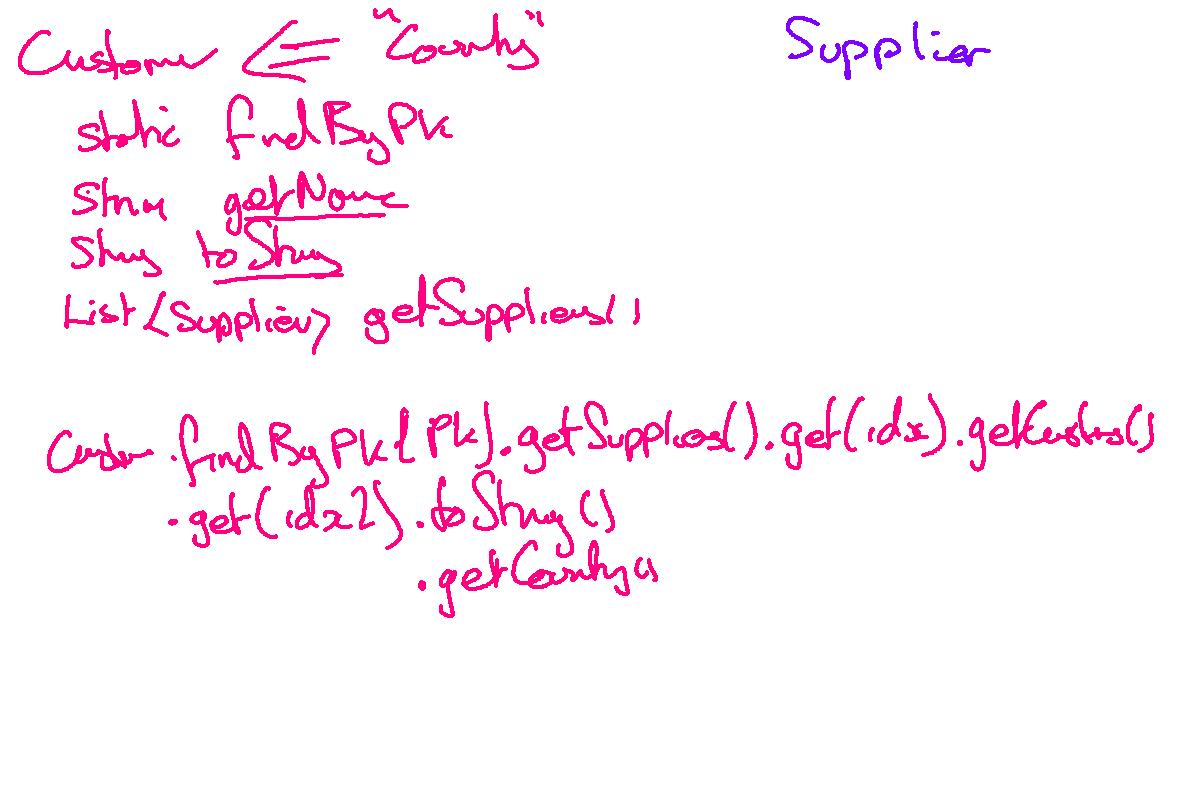 Customer <= "County"
Supplier
static findByPk
String getName
String toString
List<Supplier> getSuppliers()
Customer.findByPk(Pk).getSupplies().get(idx).getCustos()
.get(idx2).toString()
.getCounty()